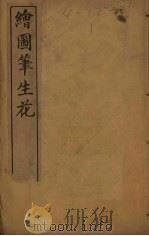 繪圖筆生花